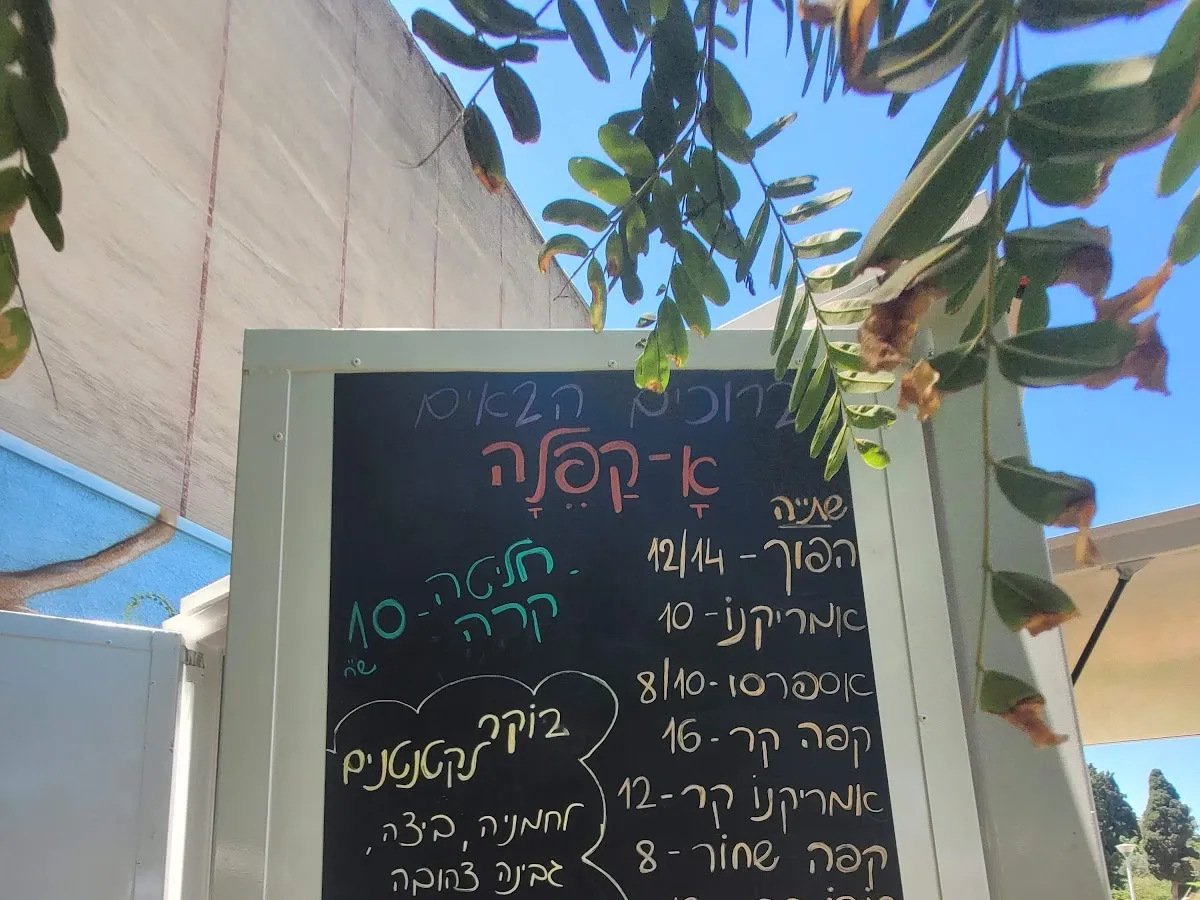 ברוכים הבאים
אָ-קַפֵּלָה
שתייה
הפוך - 12/14
אמריקנו - 10
אספרסו - 8/10
קפה קר - 16
אמריקנו קר - 12
קפה שחור - 8
חליטה
קרה - 10
ש"ח
בוקר
לקטנטנים
לחמניה, ביצה,
גבינה צהובה